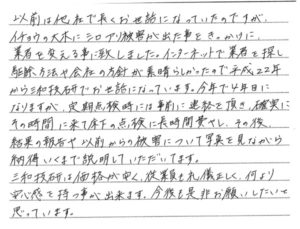 以前は他社で長くお世話になっていたのですが、
イチョウの大木にシロアリ被害が出た事をきっかけに、
業者を変える事に致しました。インターネットで業者を探し
駆除方法や会社の方針が素晴らしかったので平成22年
から三和技研でお世話になっています。今年で4年目に
なりますが、定期点検時には事前に連絡を頂き、確実に
その時間に来て床下の点検に長時間費やし、その後、
結果の報告や以前からの被害について写真を見ながら
納得いくまで説明していただいてます。
三和技研は価格が安く、従業員も礼儀正しく、何より
安心感を持つ事が出来ます。今後も是非お願いしたいと
思っています。